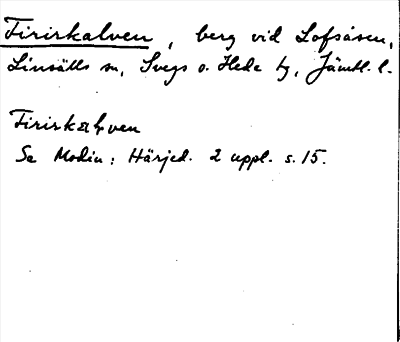 Firirkalven, berg vid Lofsåsen,
Linsälls sn, Svegs o. Hede tg, Jämtl. l.
Firirkalven
Se Modin: Härjed. 2 uppl. s. 15.